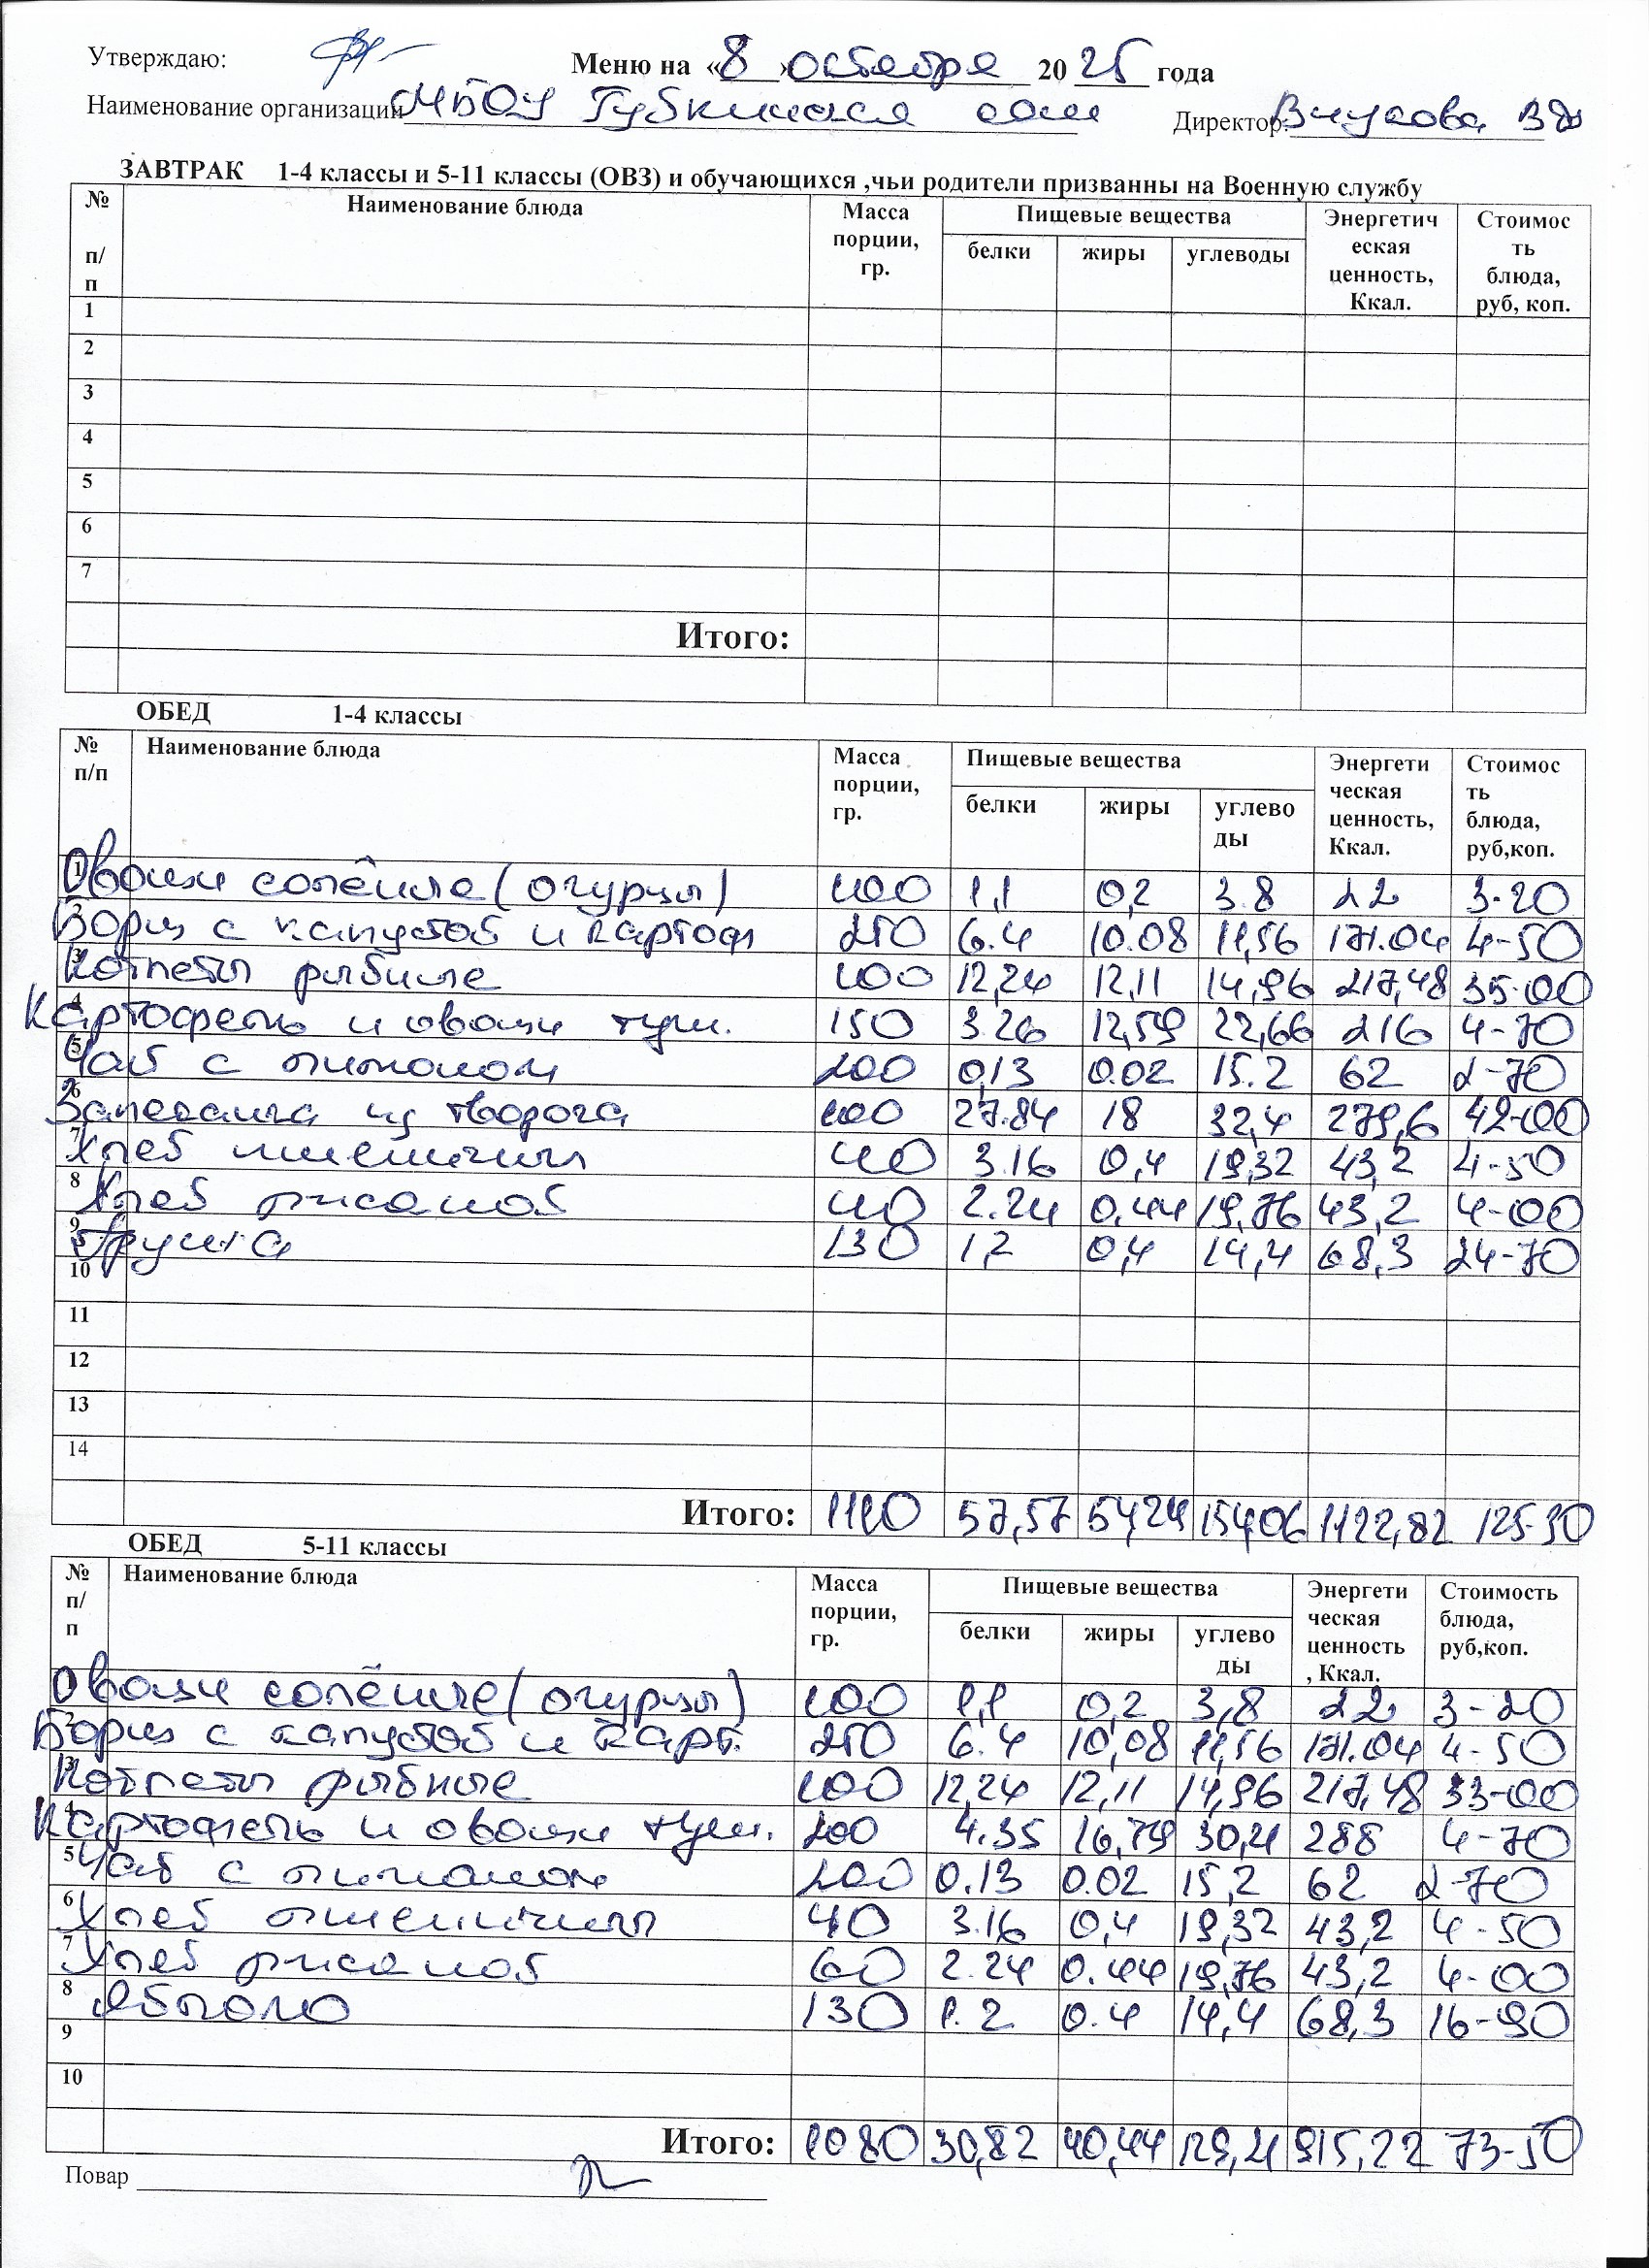 Утверждаю:
Меню на «8» октября 2025 года
Наименование организации МБОУ Губкинская сош Директор:
ЗАВТРАК 1-4 классы и 5-11 классы (ОВЗ) и обучающихся ,чьи родители призванны на Военную службу
№ п/п Наименование блюда Масса порции, гр. Пищевые вещества Энергетическая ценность, Ккал. Стоимость блюда, руб, коп.
белки жиры углеводы
1
2
3
4
5
6
7
Итого:
ОБЕД 1-4 классы
№ п/п Наименование блюда Масса порции, гр. Пищевые вещества Энергетическая ценность, Ккал. Стоимость блюда, руб,коп.
белки жиры углеводы
1 Овощи солёные (огурцы) 100 1,1 0,2 3.8 22 3-20
2 Борщ с капустой и картоф 250 6.4 10.08 11,56 171.04 4-50
3 Котлеты рыбные 100 12,24 12,11 14,96 217,48 35-00
4 Картофель и овощи туш. 150 3.26 12,59 22,66 216 4-70
5 Чай с лимоном 200 0,13 0.02 15.2 62 2-70
6 Запеканка из творога 100 27.84 18 32,4 279,6 42-00
7 Хлеб пшеничный 40 3.16 0,4 19,32 43,2 4-50
8 Хлеб ржаной 40 2.24 0.44 19,76 43,2 4-00
9 Груша 130 1,2 0,4 14,4 68,3 24-70
10
11
12
13
14
Итого: 1110 57,57 54,24 154,06 1122,82 125-30
ОБЕД 5-11 классы
№ п/п Наименование блюда Масса порции, гр. Пищевые вещества Энергетическая ценность, Ккал. Стоимость блюда, руб,коп.
белки жиры углеводы
1 Овощи солёные (огурцы) 100 1,1 0,2 3,8 22 3-20
2 Борщ с капустой и карт. 250 6.4 10,08 11,56 171.04 4-50
3 Котлеты рыбные 100 12,24 12,11 14,96 217,48 33-00
4 Картофель и овощи туш. 200 4.35 16,79 30,21 288 4-70
5 Чай с лимоном 200 0.13 0.02 15,2 62 2-70
6 Хлеб пшеничный 40 3.16 0,4 19,32 43,2 4-50
7 Хлеб ржаной 60 2.24 0.44 19,76 43,2 4-00
8 Яблоко 130 1.2 0.4 14,4 68,3 16-90
9
10
Итого: 1080 30,82 40,44 129,21 915,22 73-50
Повар